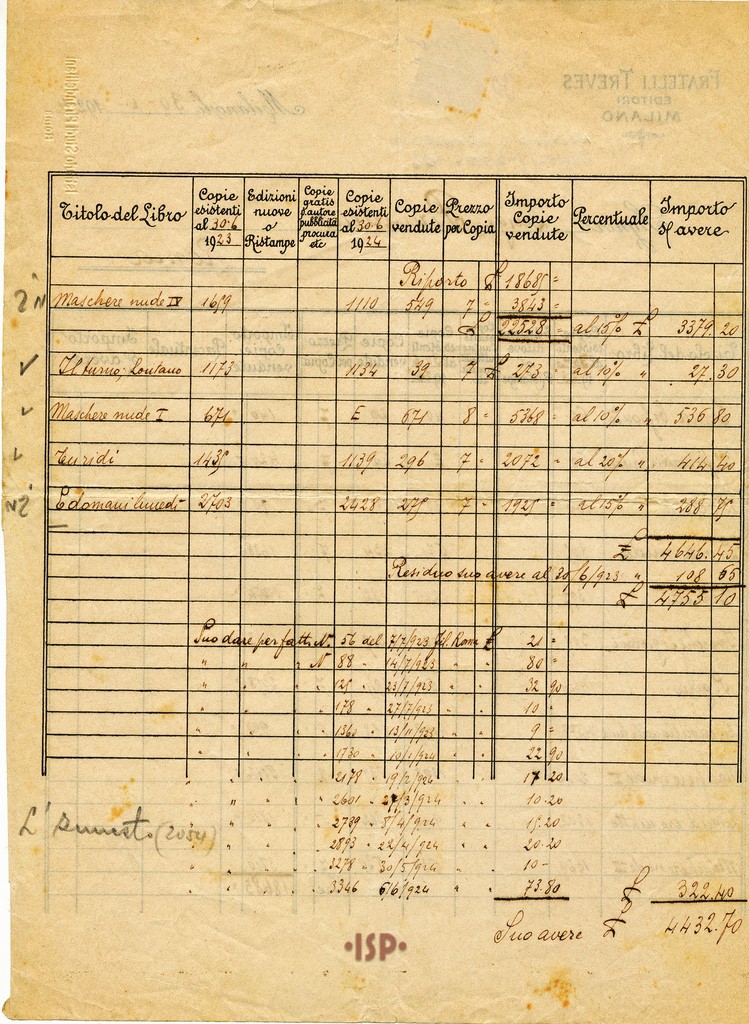 FRATELLI TREVES
EDITORI
MILANO
Titolo del Libro | Copie esistenti al 30-6 1923 | Edizioni nuove o Ristampe | Copie gratis autore pubblicità procura etc | Copie esistenti al 30-6 1924 | Copie vendute | Prezzo per Copia | Importo Copie vendute | Percentuale | Importo avere
Riporto £ 18685 =
Maschere nude IV 1659 1110 549 7 = 3843 =
£ 22528 = al 15% £ 3379.20
Il turno; Lontano 1173 1134 39 7 = £ 273 = al 10% " 27.30
Maschere nude I 671 E 671 8 = 5368 = al 10% " 536 80
1435 1139 296 7 = 2072 = al 20% " 414 40
E domani lunedì 2703 2428 275 7 = 1925 = al 15% " 288.75
£ 4646.45
Residuo suo avere al 30/6/923 " 108 65
£ 4755 10
Suo dare per fatt. N. 56 del 7/7/923 fil. Roma £ 21 =
" " " N 88 " 14/7/923 80 =
" " " " 125 " 23/7/923 " " 32 90
" " " " 178 " 27/7/923 " " 10 "
" " " " 1360 " 13/11/923 " " 9 =
" " " " 1730 " 10/1/924 " " 22.90
" " " " 2178 " 19/2/924 " " 17 20
" " " " 2601 " 27/3/924 " " 10.20
" " " " 2739 " 5/4/924 " " 15.20
L' (2054)
" " " " 2893 " 22/4/924 " " 20.20
" " " " 3278 " 30/5/924 " " 10 -
" " " " 3346 6/6/924 " " 73.80 £ 322.40
Suo avere £ 4432.70
•ISP•